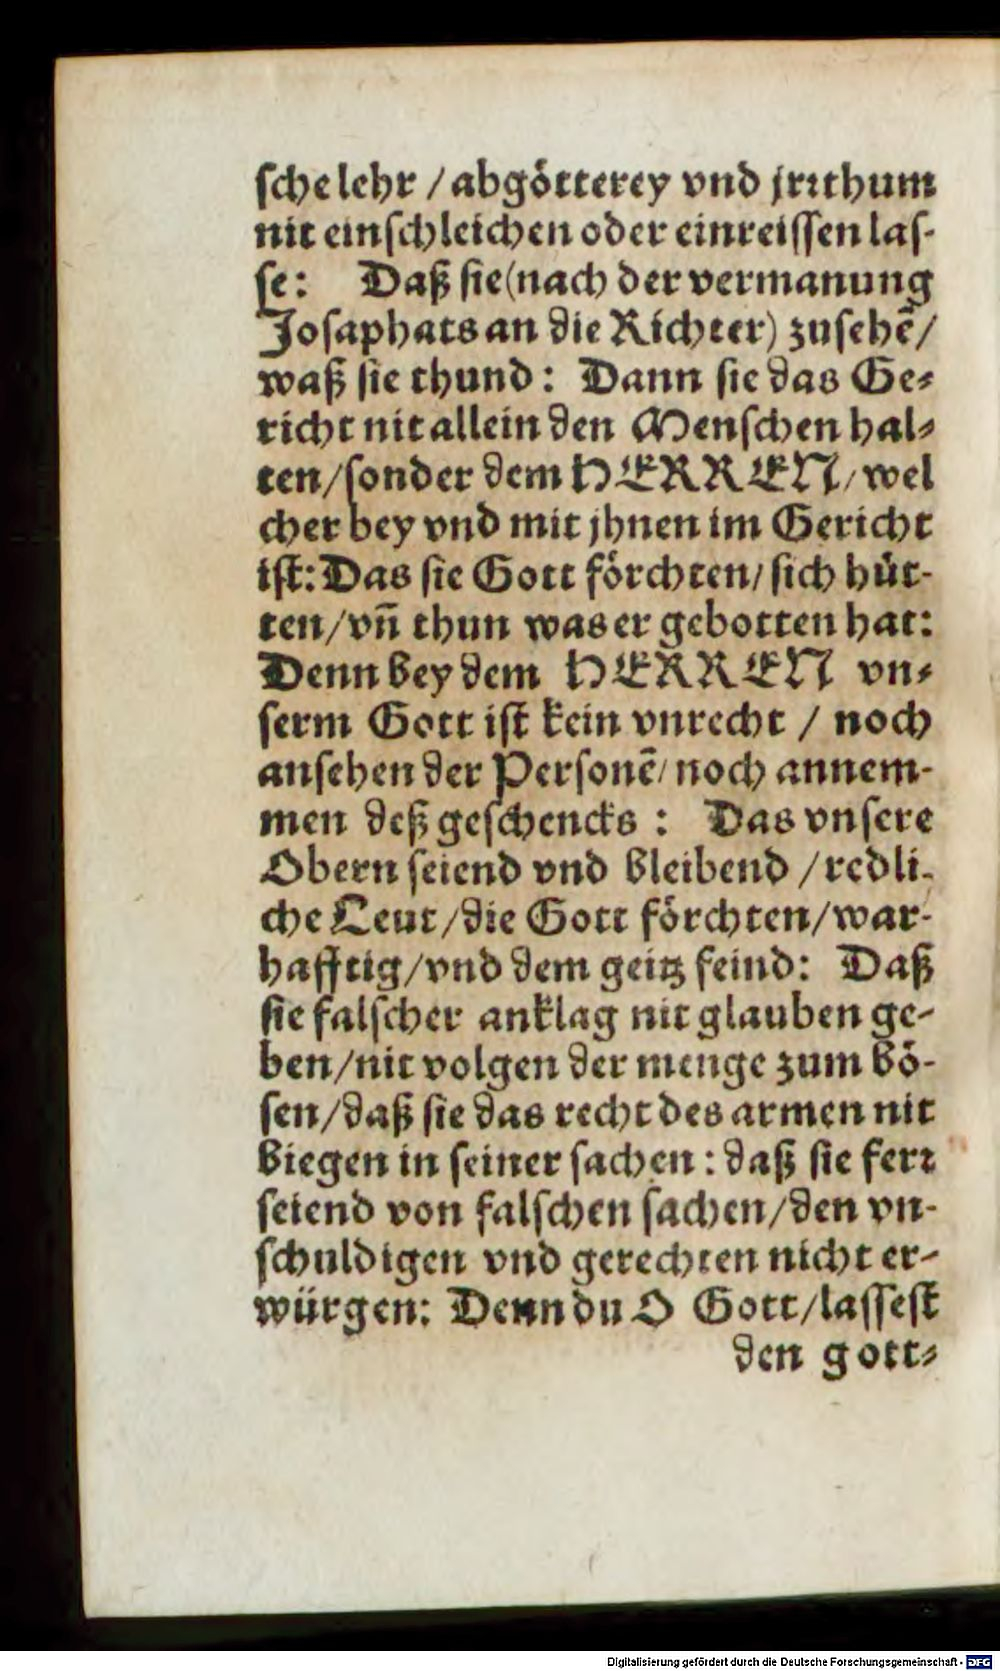 ſche lehr / abgötterey vnd jrꝛthumb
nit einſchleichen oder einreiſſen laſ-
ſe: Daß ſie (nach der vermanung
Joſaphats an die Richter) zuſehē /
waß ſie thund: Dann ſie das Ge-
richt nit allein den Menſchen hal-
ten / ſonder dem HERREN / wel
cher bey vnd mit jhnen im Gericht
iſt: Das ſie Gott förchten / ſich hüt-
ten / vñ thun was er gebotten hat:
Denn bey dem HERREN vn-
ſerm Gott iſt kein vnrecht / noch
anſehen der Perſonē / noch annem-
men deß geſchencks: Das vnſere
Obern ſeiend vnd bleibend / redli-
che Leut / die Gott förchten / war-
hafftig / vnd dem geitz feind: Daß
ſie falſcher anklag nit glauben ge-
ben / nit volgen der menge zum bö-
ſen / daß ſie das recht des armen nit
biegen in ſeiner ſachen: daß ſie ferꝛ
ſeiend von falſchen ſachen / den vn-
ſchuldigen vnd gerechten nicht er-
würgen: Denn du O Gott / laſſeſt
den gott-
Digitalisierung gefördert durch die Deutsche Forschungsgemeinschaft - DFG